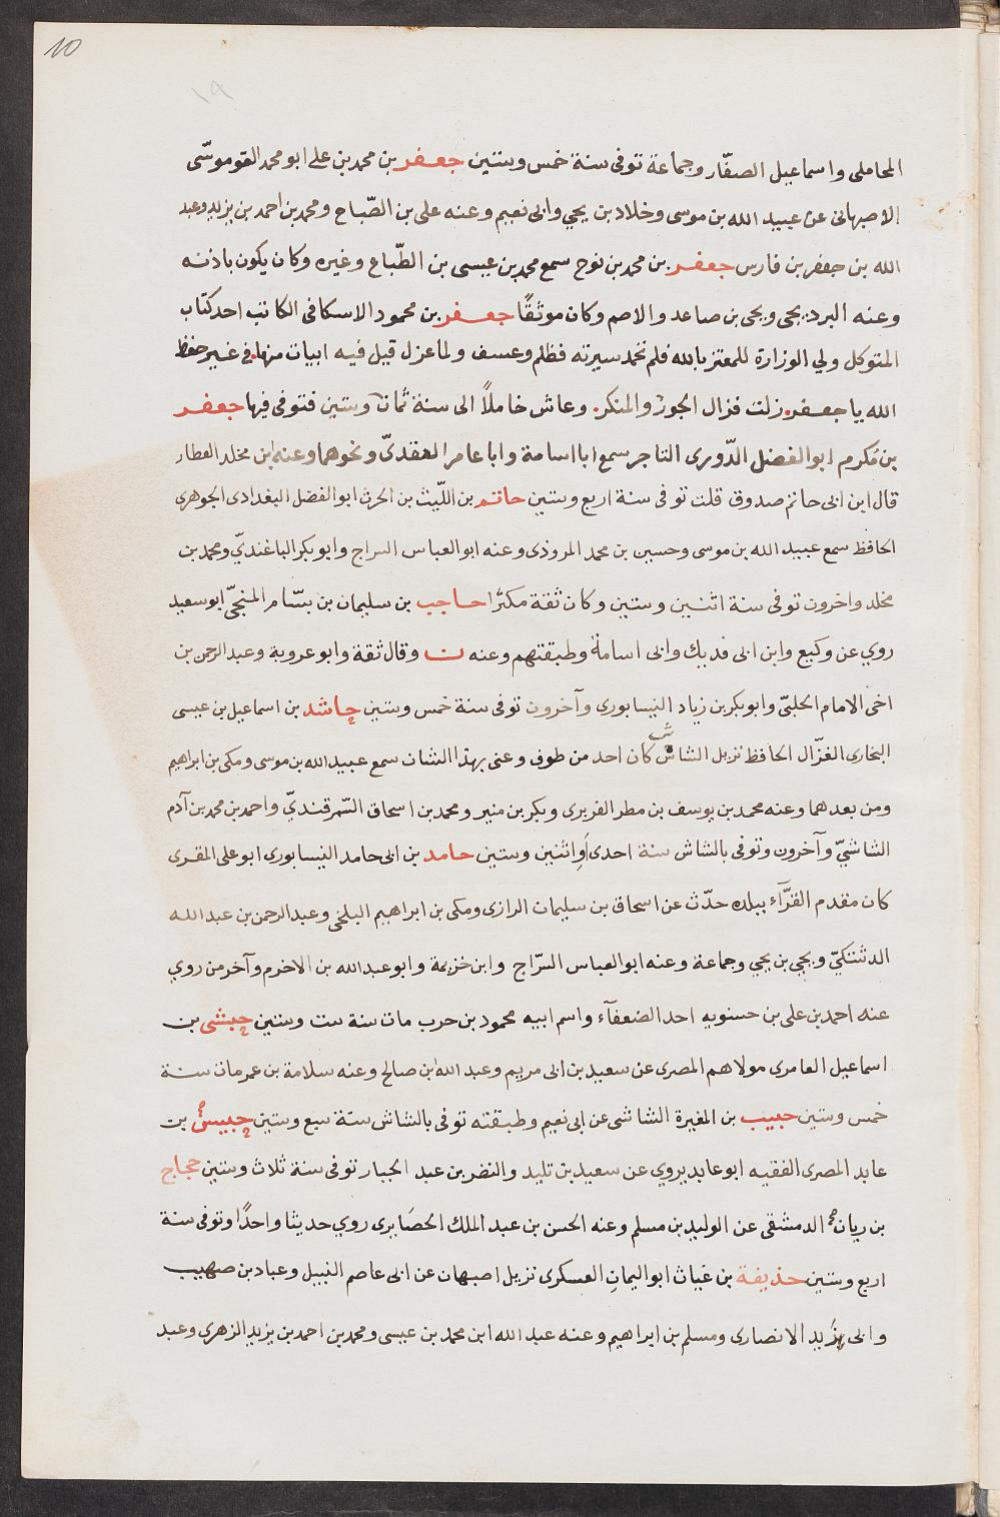 10
١٩
المحاملى واسماعيل الصفّار وجماعة توفى سنة خمس وستين جعفر بن محمد بن على ابو محمد القوموسّى
الاصبهانى عن عبيد الله بن موسى وخلاد بن يحيي وابى نعيم وعنه على بن الصّباح ومحمد بن احمد بن يزيد وعبد
الله بن جعفر بن فارس جعفر بن محمد بن نوح سمع محمد بن عيسى بن الطّباع وغيره وكان يكون باذنه
وعنه البرديجى ويحى بن صاعد والاصم وكان موثقًا جعفر بن محمود الاسكافى الكاتب احد كتاب
المتوكل ولي الوزارة للمعتز بالله فلم تحمد سيرته فظلم وعسف ولما عزل قيل فيه ابيات منها فى غير حفظ
الله يا جعفر زلت فزال الجور والمنكر وعاش خاملاً الى سنة ثمان وستين فتوفى فيها جعفر
بن مُكرم ابو الفضل الدّورى التاجر سمع ابا اسامة وابا عامر العقدىّ ونحوهما وعنه ابن مخلد العطار
قال ابن ابى حاتم صدوق قلت توفى سنة اربع وستين حاتم بن اللّيث بن الحرث ابو الفضل البغدادى الجوهرى
الحافظ سمع عبيد الله بن موسى وحسين بن محمد المروذى وعنه ابو العباس السراج وابو بكر الباغنديّ ومحمد بن
مخلد واخرون توفى سنة اثنين وستين وكان ثقة مكثرًا حاجب بن سليمان بن بسّام المنبجّى ابو سعيد
روي عن وكيع وابن ابى فديك وابى اسامة وطبقتهم وعنه ن وقال ثقة وابو عروبة وعبد الرحمن بن
اخى الامام الحلبىّ وابو بكر بن زياد النيسابورى وآخرون توفى سنة خمس وستين حاشد بن اسماعيل بن عيسى
البخارى الغزّال الحافظ نزيل الشاش كان احد من طوف وعنى بهذا الشان سمع عبيد الله بن موسى ومكى بن ابراهيم
ومن بعدهما وعنه محمد بن يوسف بن مطر الفربرى وبكر بن منير ومحمد بن اسحاق السّمرقنديّ واحمد بن محمد بن آدم
الشاشيّ وآخرون وتوفى بالشاش سنة احدى اَو اِثنين وستين حامد بن ابى حامد النيسابورى ابو على المقرى
كان مقدم القرّآء ببلده حدّث عن اسحاق بن سليمان الرازى ومكى بن ابراهيم البلخى وعبد الرحمن بن عبد الله
الدشتكيّ ويحيي بن يحيي وجماعة وعنه ابو العباس السّراج وابن خزيمة وابو عبد الله بن الاخرم وآخر من روي
عنه احمد بن على بن حسنويه احد الضعفآء واسم ابيه محمود بن حرب مات سنة ست وستين حبشى بن
اسماعيل العامرى مولاهم المصرى عن سعيد بن ابى مريم وعبد الله بن صالح وعنه سلامة بن عمر مات سنة
خمس وستين حبيب بن المغيرة الشاشى عن ابى نعيم وطبقته توفى بالشاش ستة سبع وستين حبيش بن
عابد المصرى الفقيه ابو عابد يروي عن سعيد بن تليد والنضر بن عبد الجبار توفى سنة ثلاث وستين حجاج
بن ريان الدمشقى عن الوليد بن مسلم وعنه الحسن بن عبد الملك الحصَايرى روي حديثا واحدًا وتوفى سنة
اربع وستين حذيفة بن غياث ابو اليمان العسكرى نزيل اصبهان عن ابى عاصم النبيل وعباد بن صهيب
وابى زيد الانصارى ومسلم بن ابراهيم وعنه عبد الله ابن محمد بن عيسى ومحمد بن احمد بن يزيد الزهرى وعبد